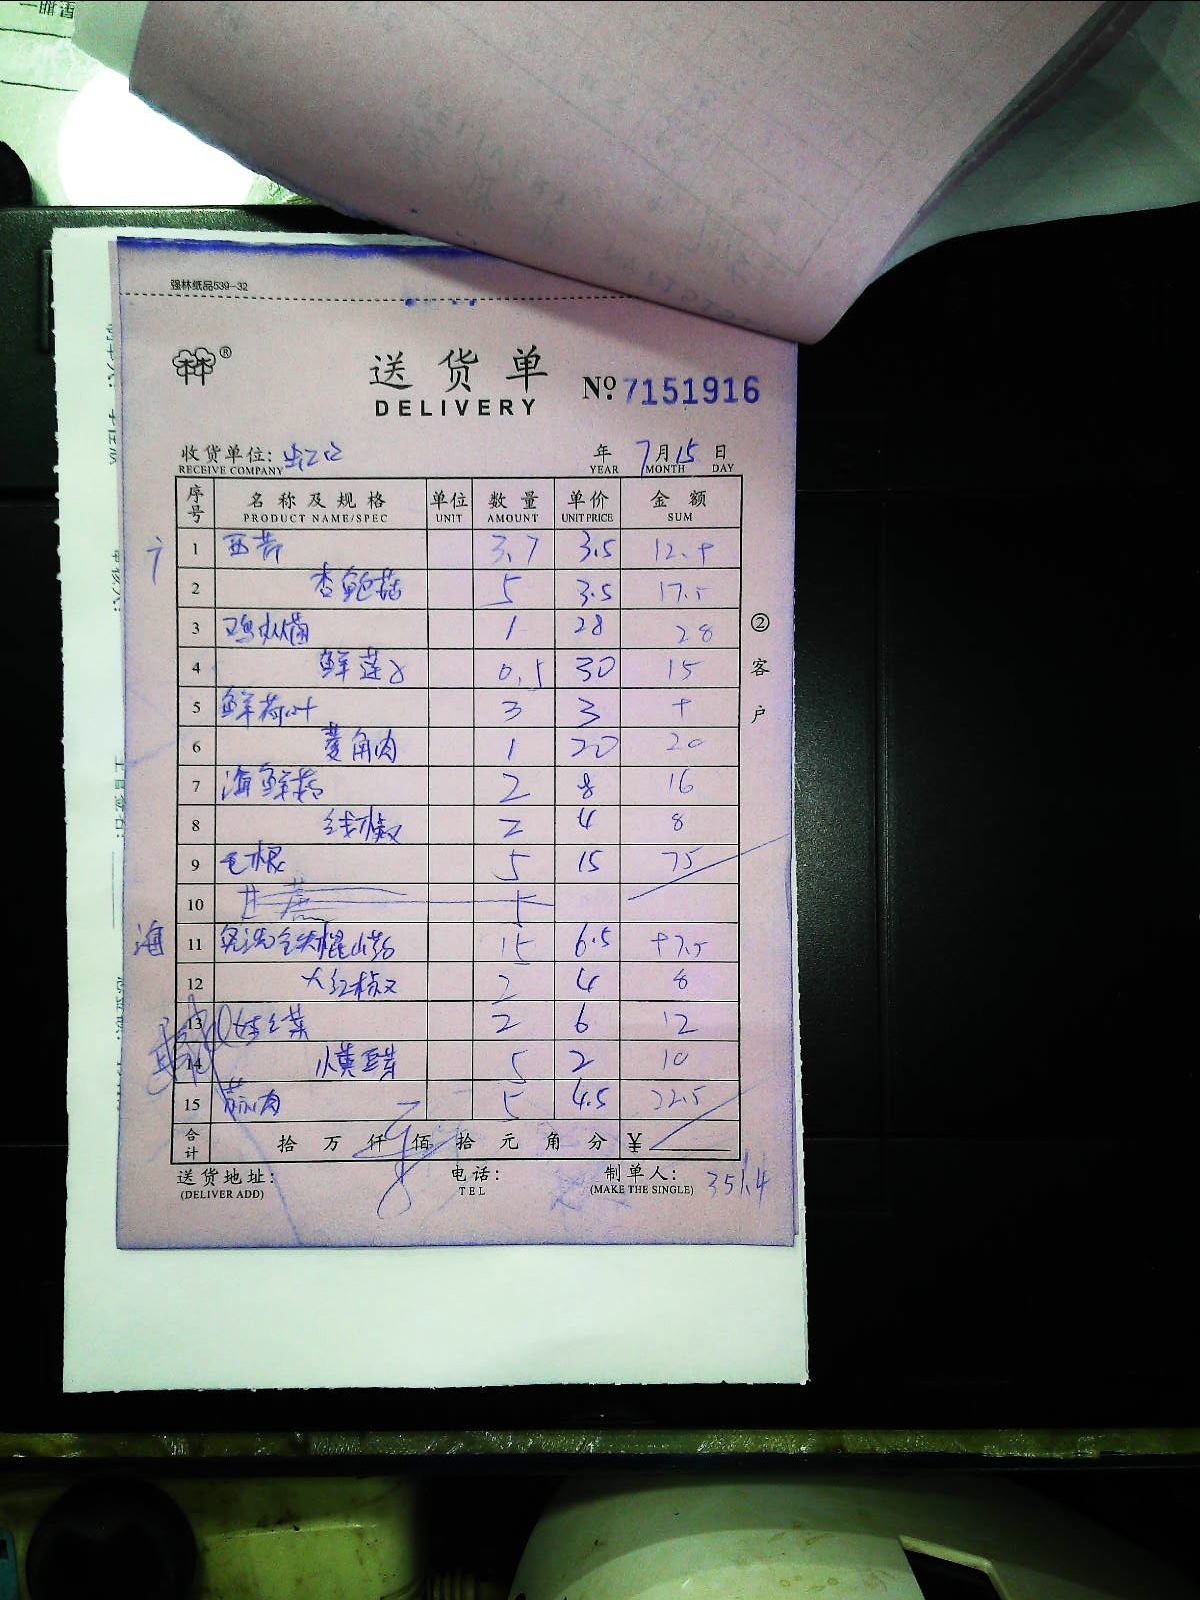 强林纸品539-32
林®
送货单
DELIVERY
№ 7151916
收货单位:
RECEIVE COMPANY
年 7月15日
YEAR MONTH DAY
序号 名称及规格 单位 数量 单价 金额
PRODUCT NAME/SPEC UNIT AMOUNT UNIT PRICE SUM
1 西芹 3.7 3.5 12.9
2 杏鲍菇 5 3.5 17.5
3 鸡枞菌 1 28 28
4 鲜莲子 0.5 30 15
5 鲜荷叶 3 3 9
6 菱角肉 1 20 20
7 海鲜菇 2 8 16
8 线椒 2 4 8
9 毛根 5 15 75
10 甘蔗 5
海
11 铁棍山药 15 6.5 97.5
12 大红椒 2 4 8
13 菜 2 6 12
14 黄豆芽 5 2 10
15 肉 5 4.5 22.5
合计 拾万仟佰拾元角分 ¥
送货地址: 电话: 制单人: 351.4
(DELIVER ADD) TEL (MAKE THE SINGLE)
②客户